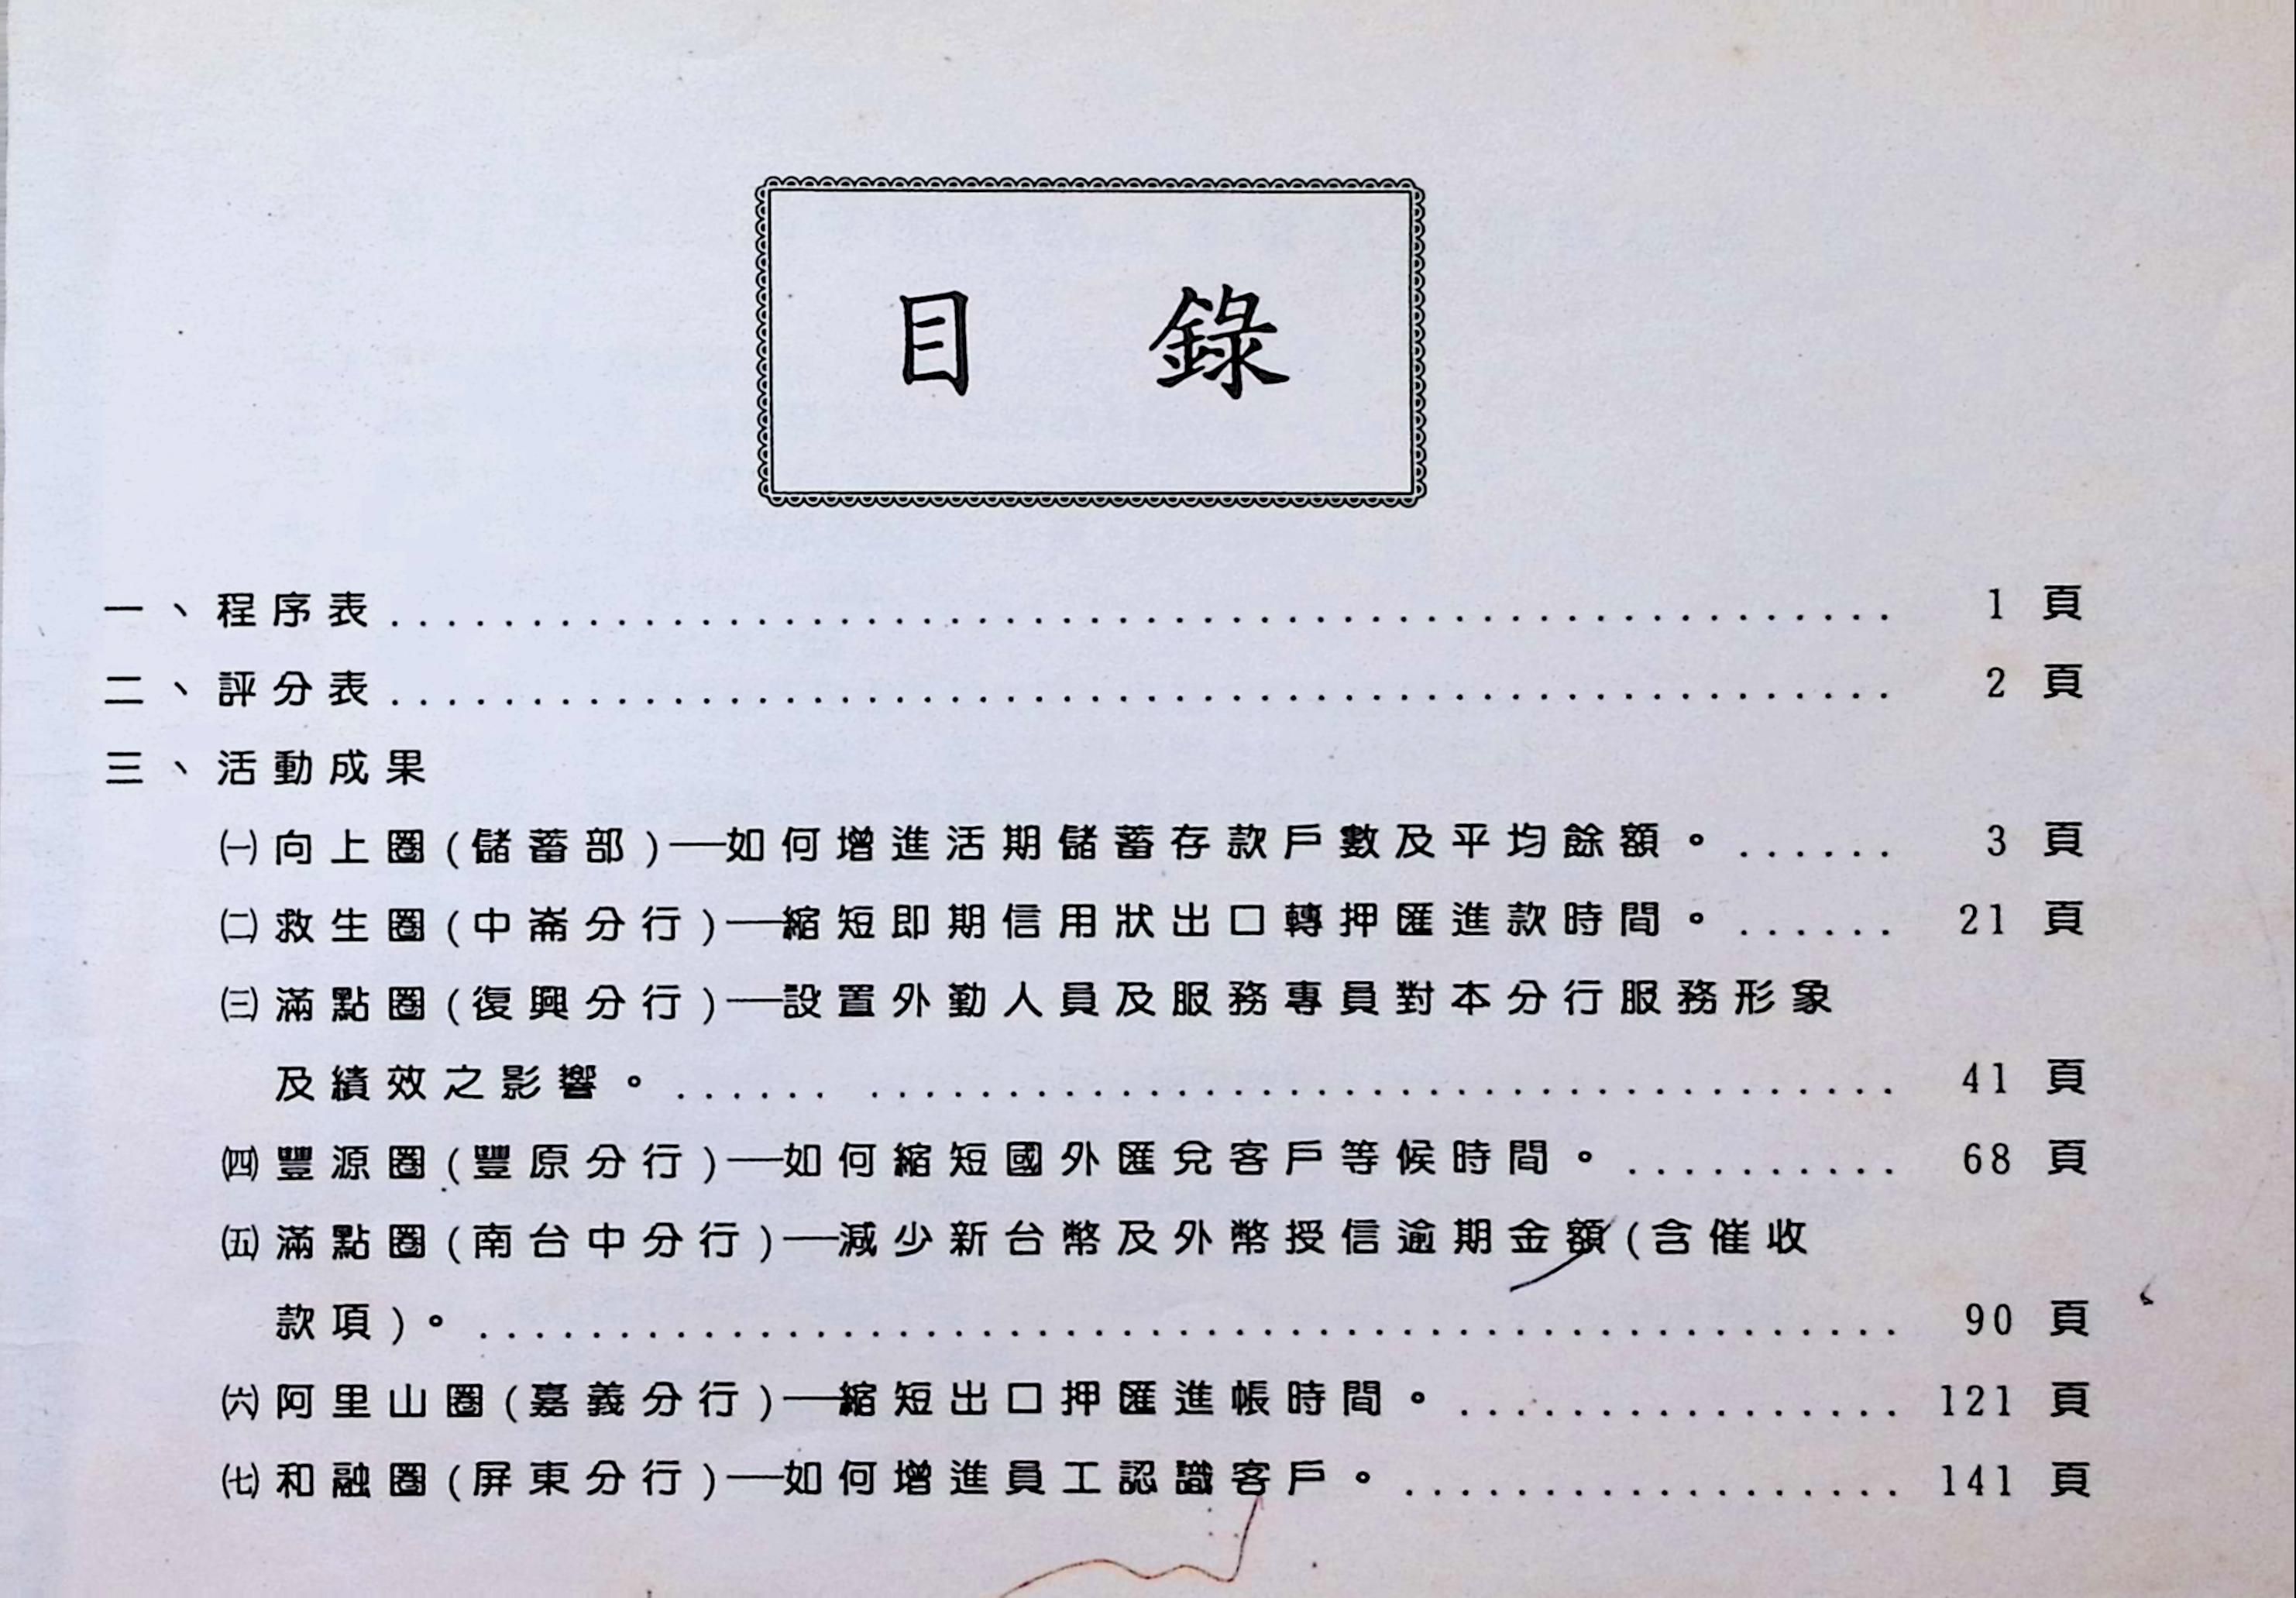 目 錄
一、程序表...................................................... 1 頁
二、評分表...................................................... 2 頁
三、活動成果
㈠向上圈(儲蓄部)──如何增進活期儲蓄存款戶數及平均餘額。...... 3 頁
㈡救生圈(中崙分行)──縮短即期信用狀出口轉押匯進款時間。...... 21 頁
㈢滿點圈(復興分行)──設置外勤人員及服務專員對本分行服務形象
及績效之影響。...... ..................................... 41 頁
㈣豐源圈(豐原分行)──如何縮短國外匯兌客戶等候時間。.......... 68 頁
㈤滿點圈(南台中分行)──減少新台幣及外幣授信逾期金額(含催收
款項)。................................................... 90 頁
㈥阿里山圈(嘉義分行)──縮短出口押匯進帳時間。................ 121 頁
㈦和融圈(屏東分行)──如何增進員工認識客戶。.................. 141 頁